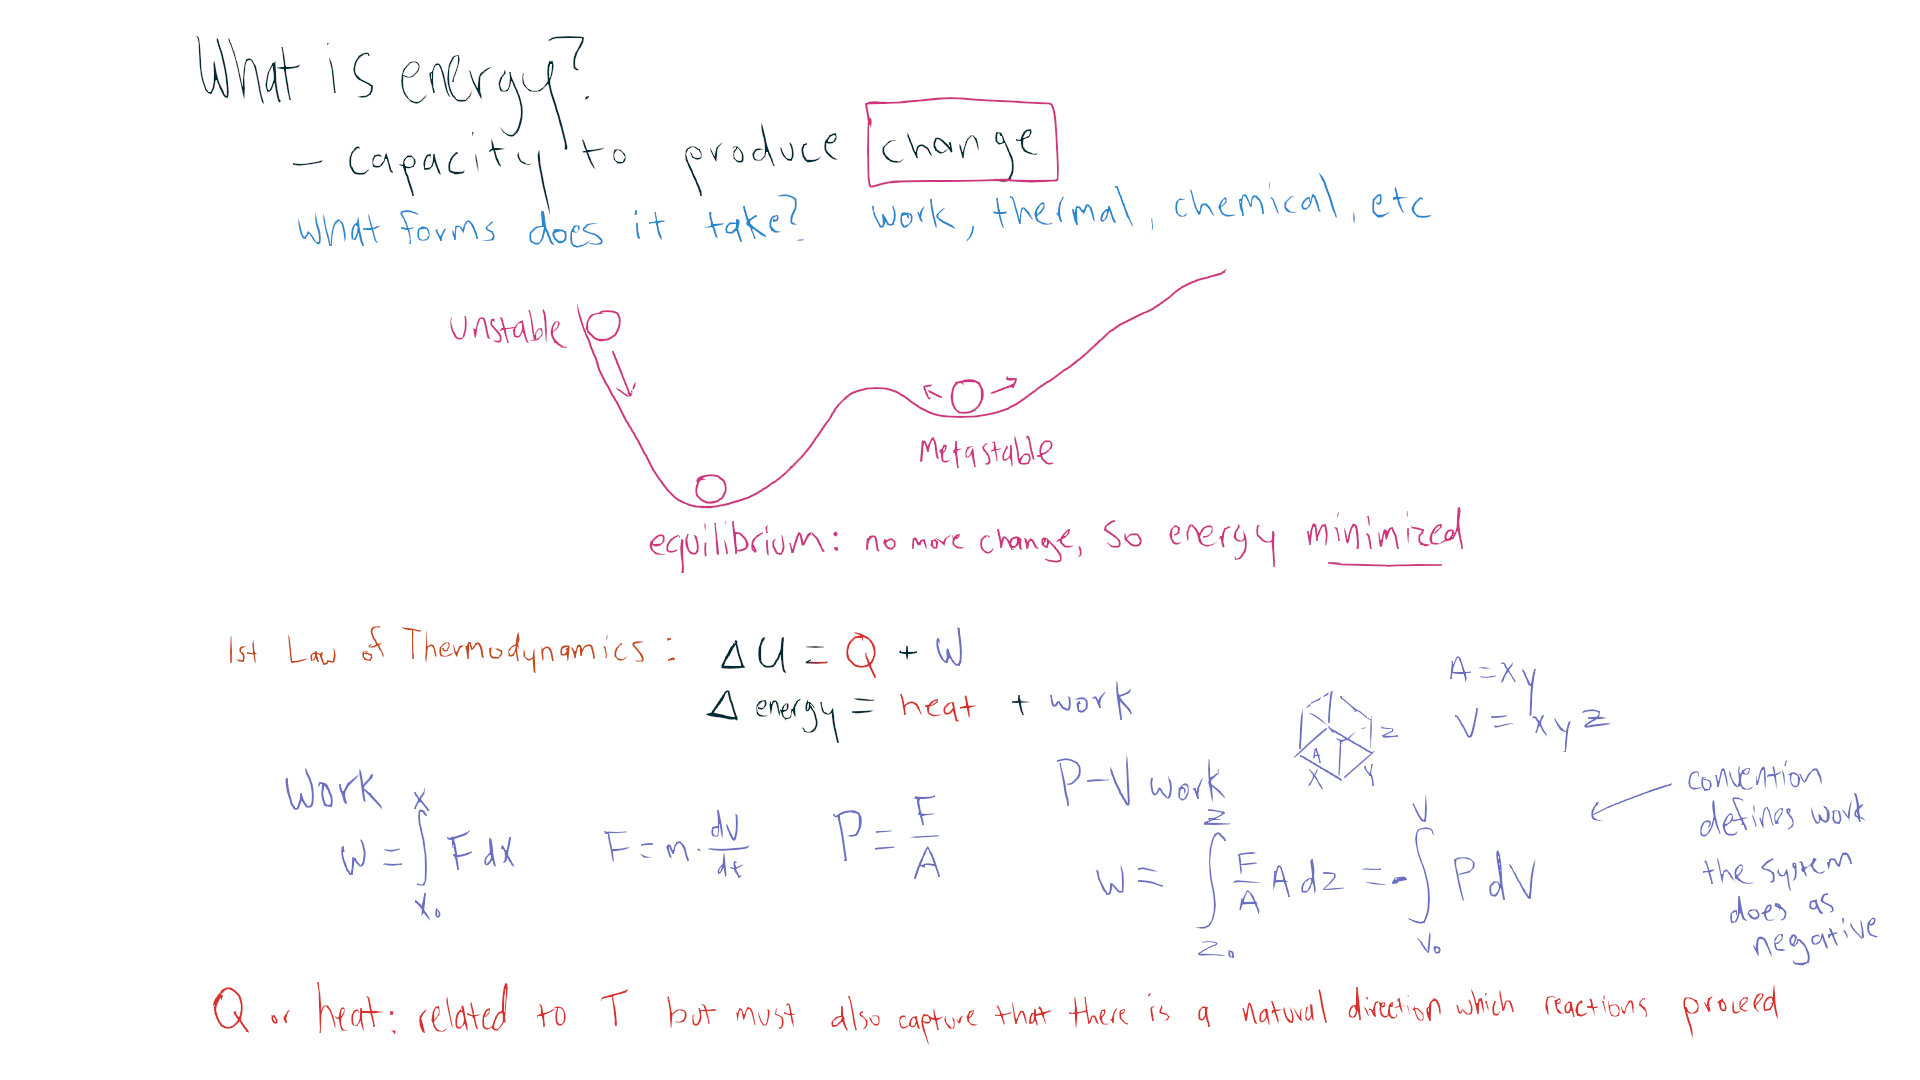 What is energy?
- capacity to produce change
What forms does it take? work, thermal, chemical, etc
Unstable
Metastable
equilibrium: no more change, so energy minimized
1st Law of Thermodynamics: ΔU = Q + W
Δ energy = heat + work
A = xy
V = xyz
A
X
Y
Z
Work
W = ∫_{x₀}^{x} F dx
F = m · dv/dt
P = F/A
P-V work
W = ∫_{z₀}^{z} F/A A dz = -∫_{V₀}^{V} P dV
convention
defines work
the system
does as
negative
Q or heat: related to T but must also capture that there is a natural direction which reactions proceed